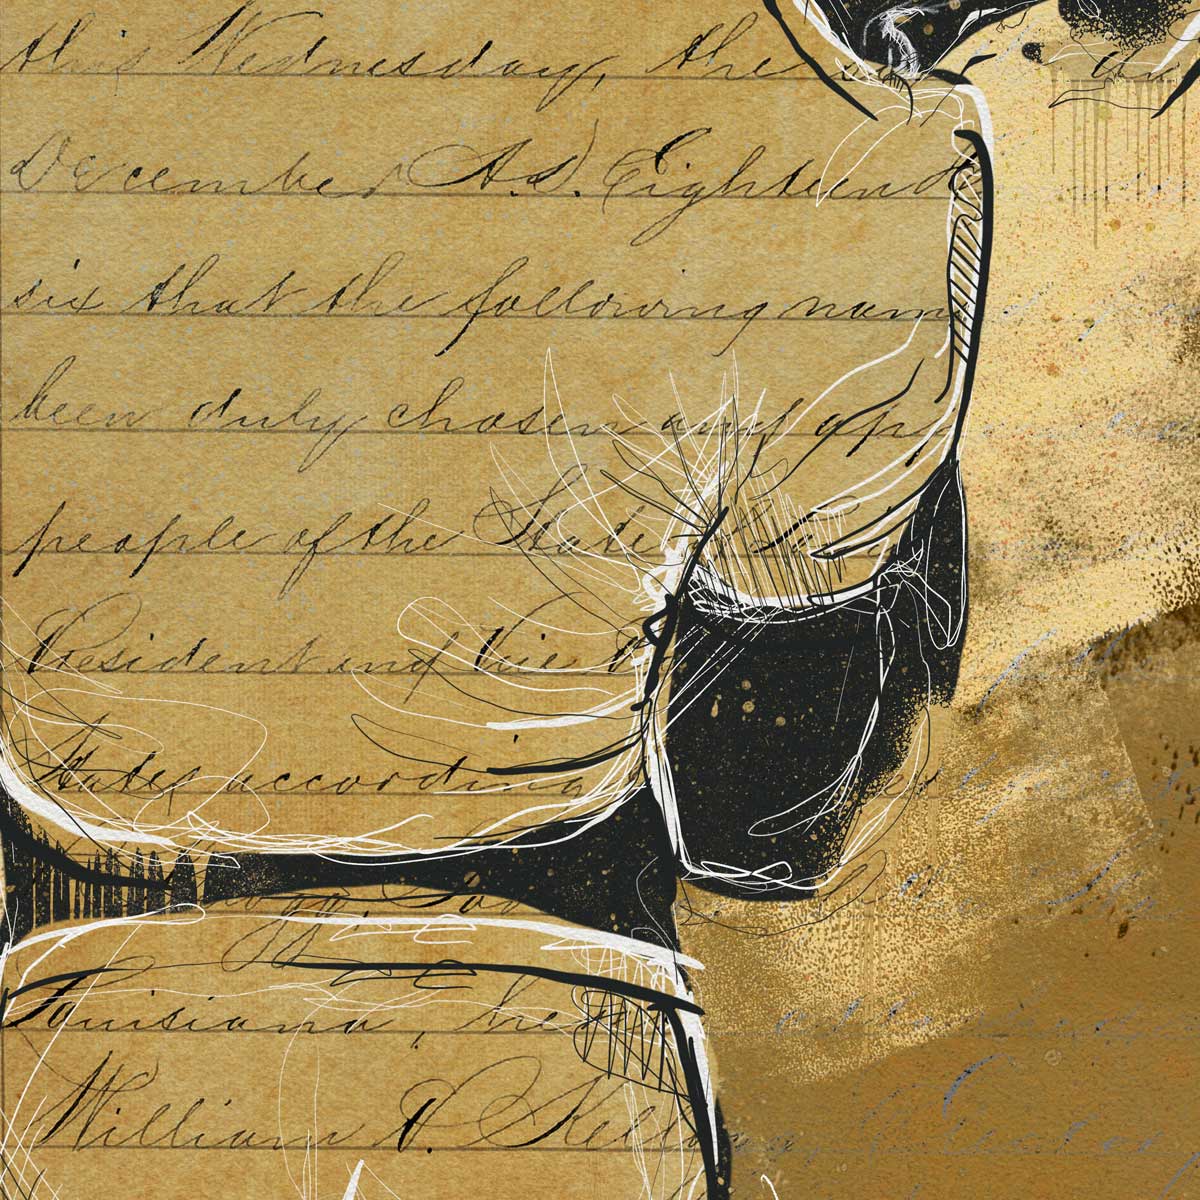 this Wednesday, the
December A.D. Eighteen
six that the following nam
been duly chosen and app
people of the State
President and Vice
States according
Louisiana, he
William P. Kellogg